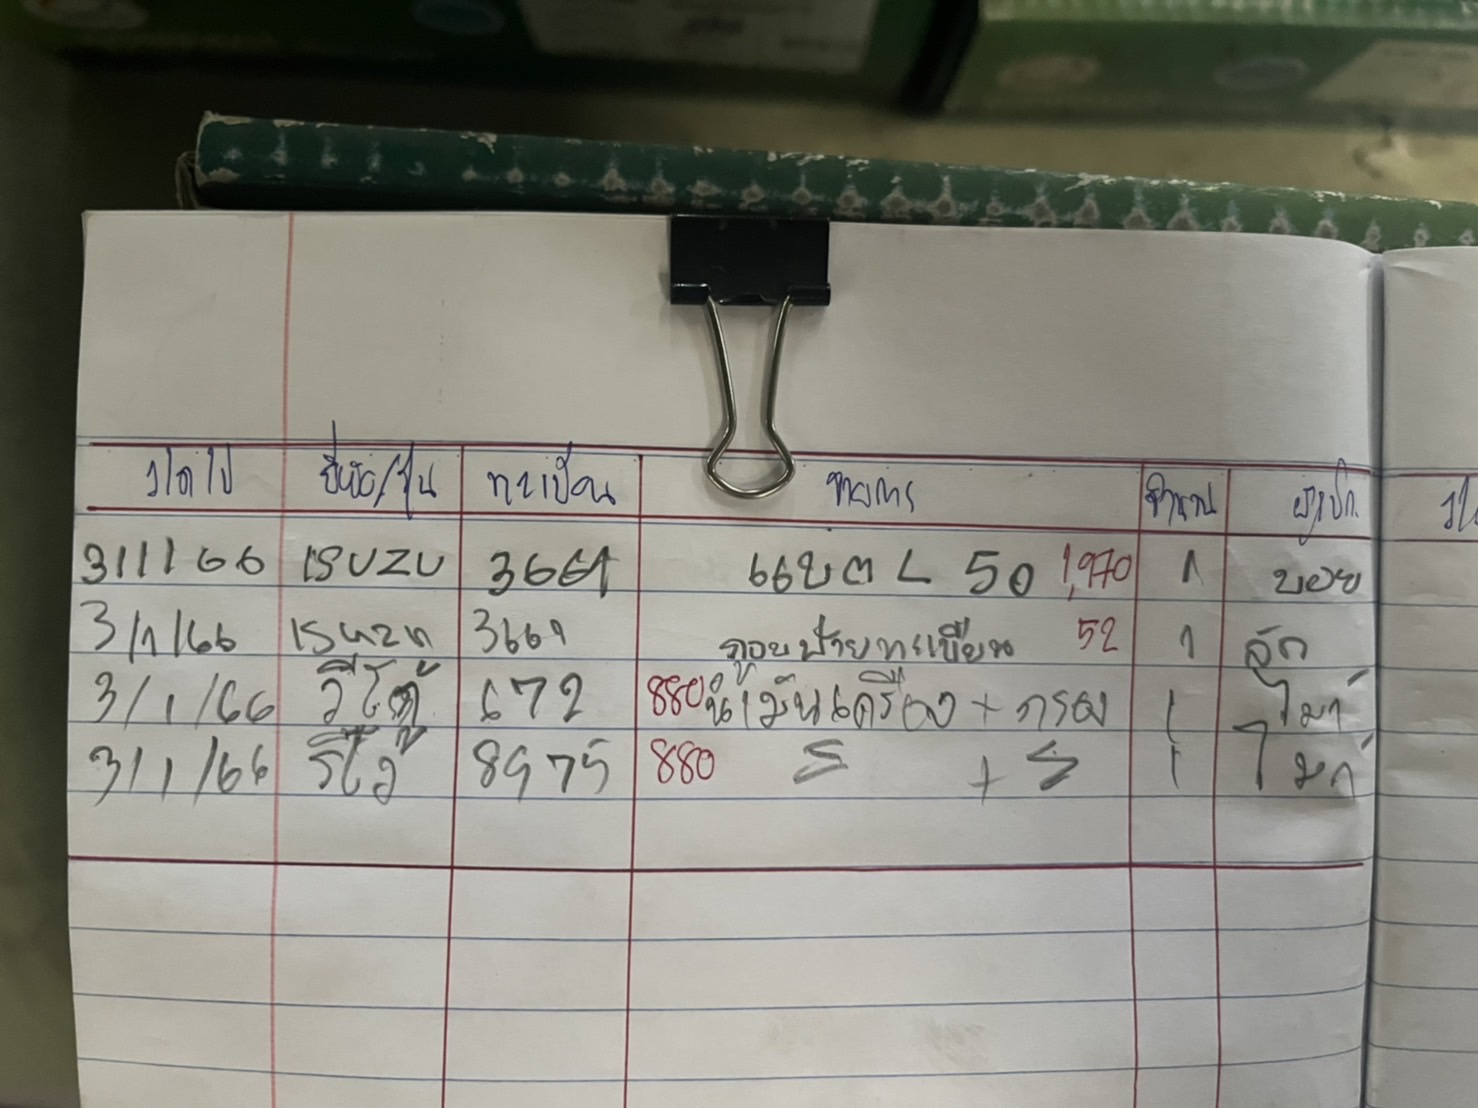 ว/ด/ป ยี่ห้อ/รุ่น ทะเบียน รายการ จำนวน ผู้เบิก
3/1/66 ISUZU 3669 แบต L 50 1,970 1 บอย
3/1/66 ISUZU 3669 52 1
3/1/66 รีโว้ 672 880 น้ำมันเครื่อง + กรอง 1 ไมก์
3/1/66 รีโว้ 8975 880 S + S 1 ไมก์